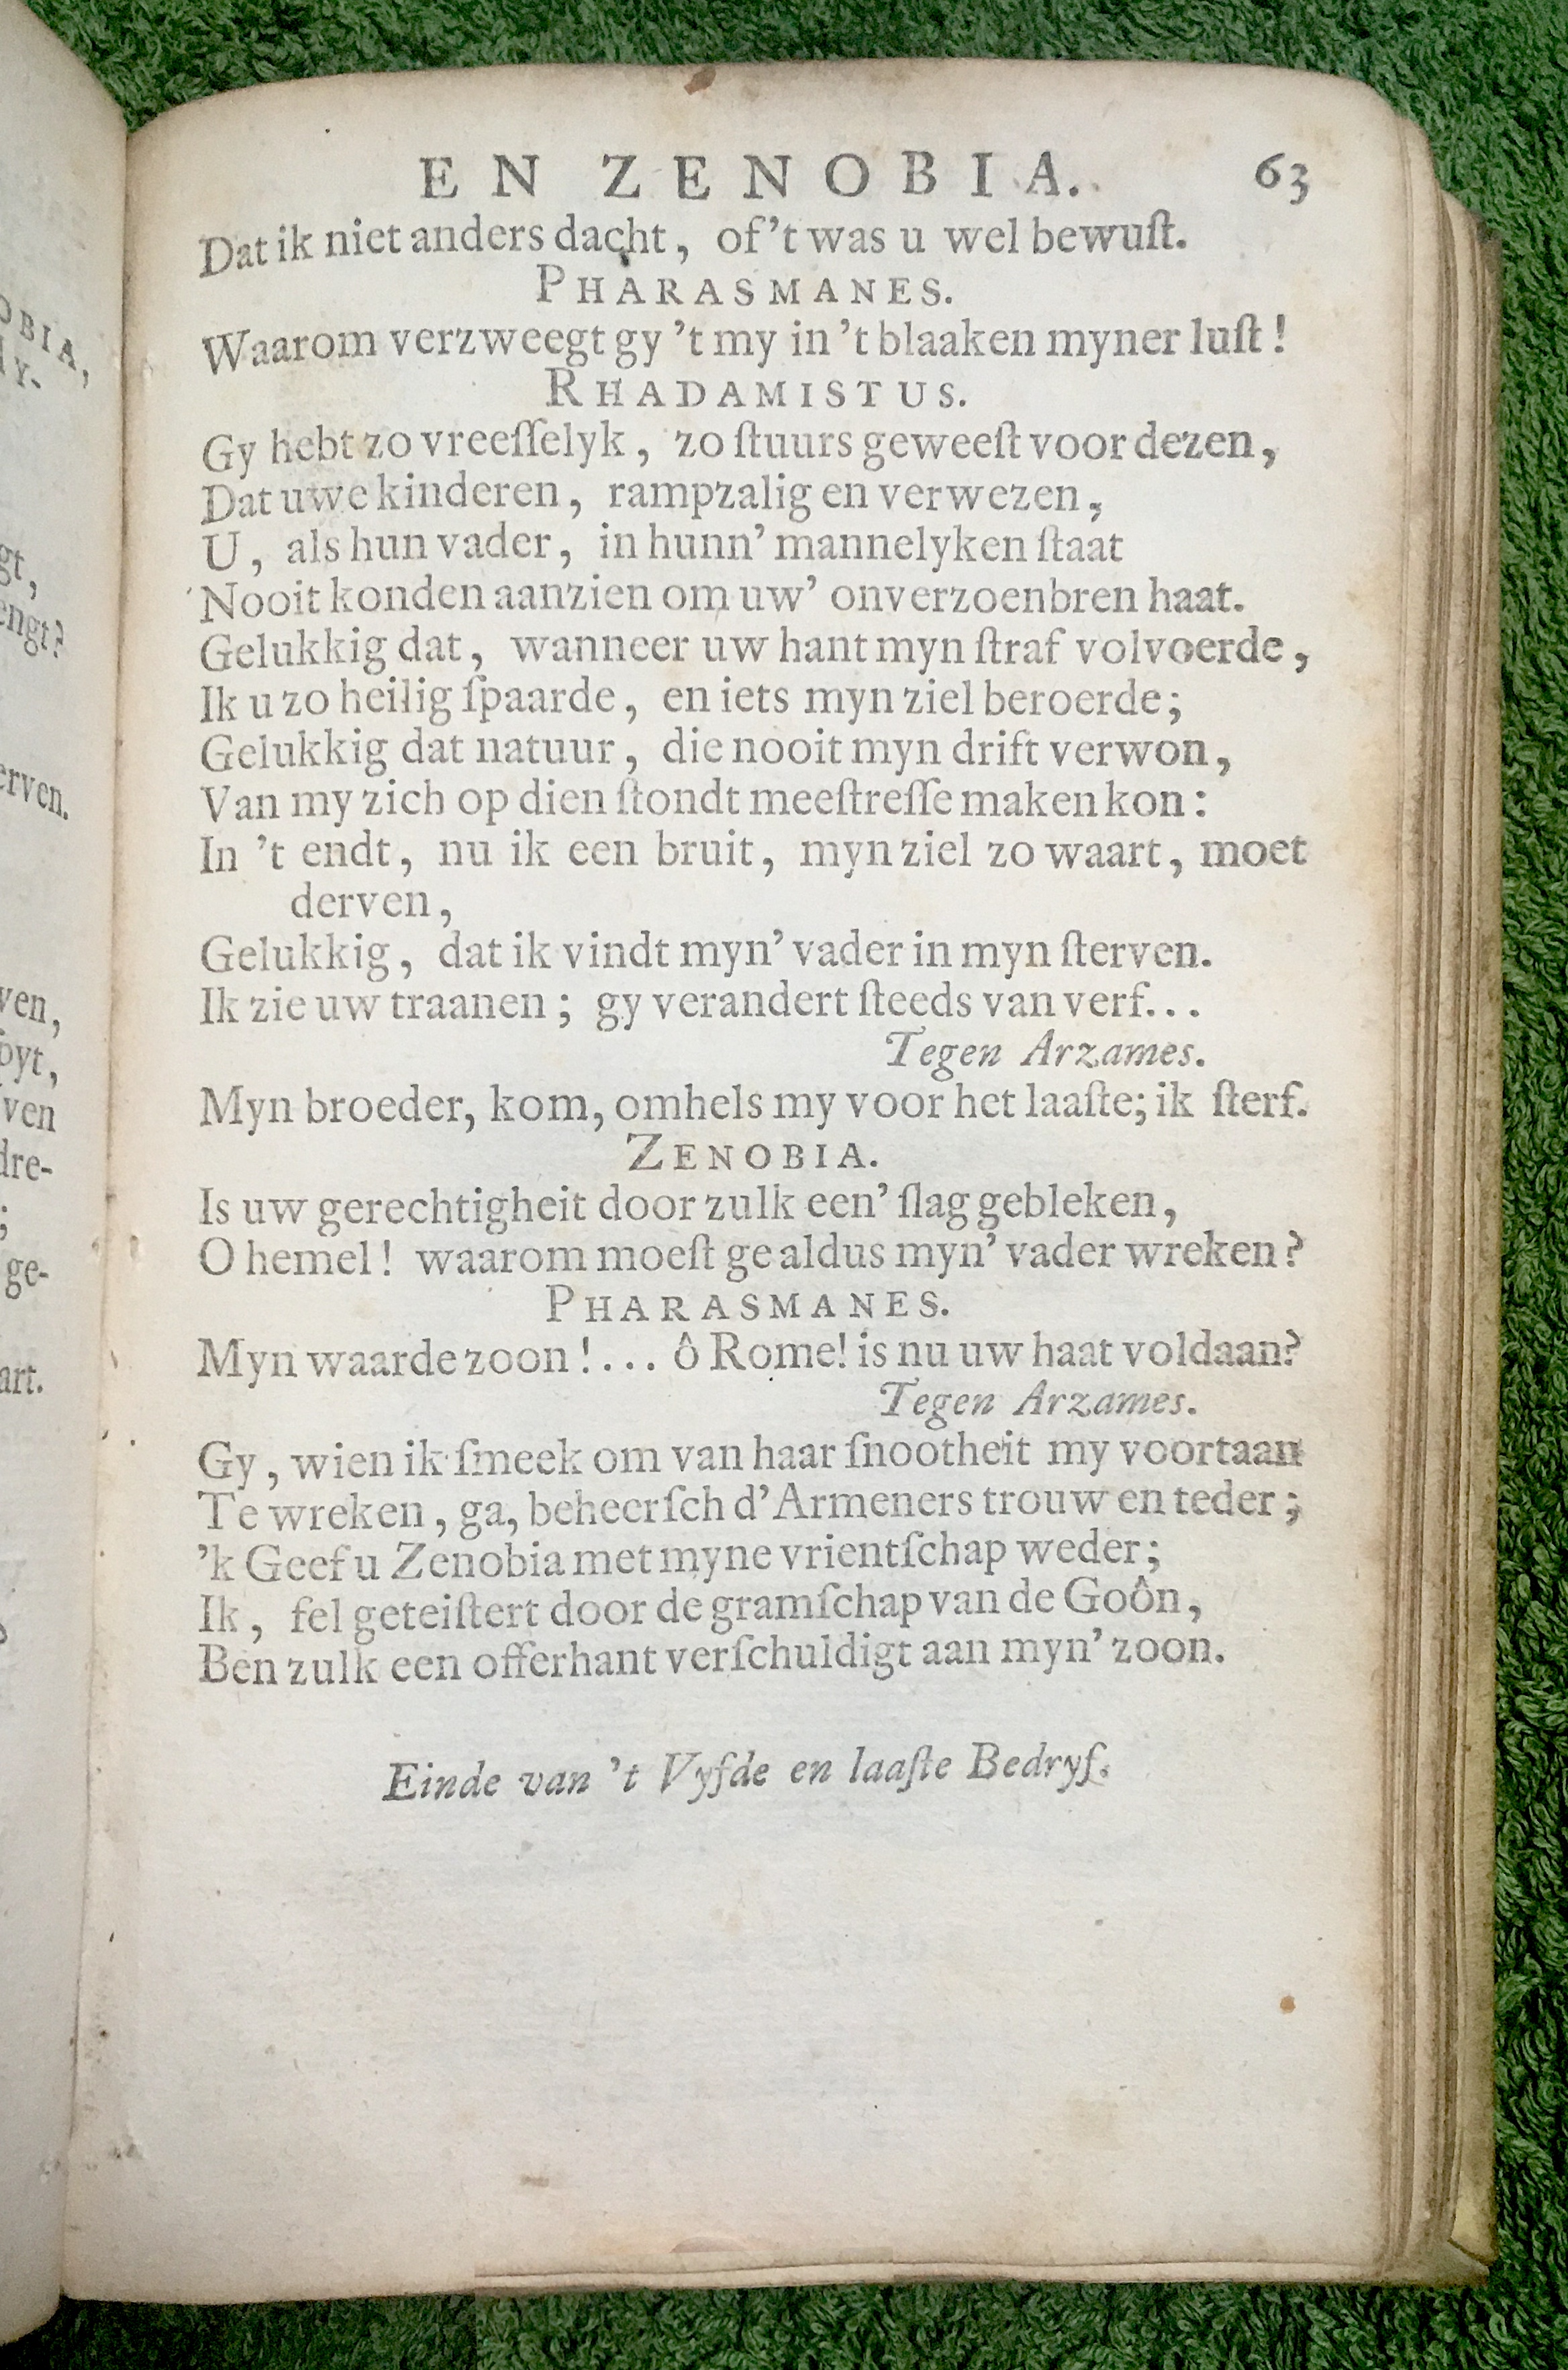 EN ZENOBIA. 63
Dat ik niet anders dacht, of 't was u wel bewuſt.
PHARASMANES.
Waarom verzweegt gy 't my in 't blaaken myner luſt!
RHADAMISTUS.
Gy hebt zo vreeſſelyk, zo ſtuurs geweeſt voor dezen,
Dat uwe kinderen, rampzalig en verwezen,
U, als hun vader, in hunn' mannelyken ſtaat
Nooit konden aanzien om uw' onverzoenbren haat.
Gelukkig dat, wanneer uw hant myn ſtraf volvoerde,
Ik u zo heilig ſpaarde, en iets myn ziel beroerde;
Gelukkig dat natuur, die nooit myn drift verwon,
Van my zich op dien ſtondt meeſtreſſe maken kon:
In 't endt, nu ik een bruit, myn ziel zo waart, moet
derven,
Gelukkig, dat ik vindt myn' vader in myn ſterven.
Ik zie uw traanen; gy verandert ſteeds van verf...
Tegen Arzames.
Myn broeder, kom, omhels my voor het laaſte; ik ſterf.
ZENOBIA.
Is uw gerechtigheit door zulk een' ſlag gebleken,
O hemel! waarom moeſt ge aldus myn' vader wreken?
PHARASMANES.
Myn waarde zoon!... ô Rome! is nu uw haat voldaan?
Tegen Arzames.
Gy, wien ik ſmeek om van haar ſnootheit my voortaan
Te wreken, ga, beheerſch d'Armeners trouw en teder;
'k Geef u Zenobia met myne vrientſchap weder;
Ik, fel geteiſtert door de gramſchap van de Goôn,
Ben zulk een offerhant verſchuldigt aan myn' zoon.
Einde van 't Vyfde en laaſte Bedryf.